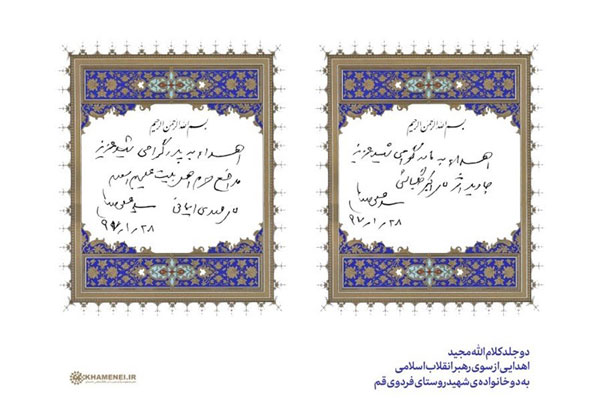 بسم الله الرحمن الرحیم
اهداء به مادر گرامی شهید عزیز
جاوید اثر
۹۷/۱/۲۸
بسم الله الرحمن الرحیم
اهداء به پدر گرامی شهید عزیز
مدافع حرم اهل بیت علیهم السلام
ایمانی
۹۷/۱/۲۸
دو جلد کلام‌الله مجید
اهدایی از سوی رهبر انقلاب اسلامی
به دو خانواده‌ی شهید روستای فردوی قم
KHAMENEI.IR